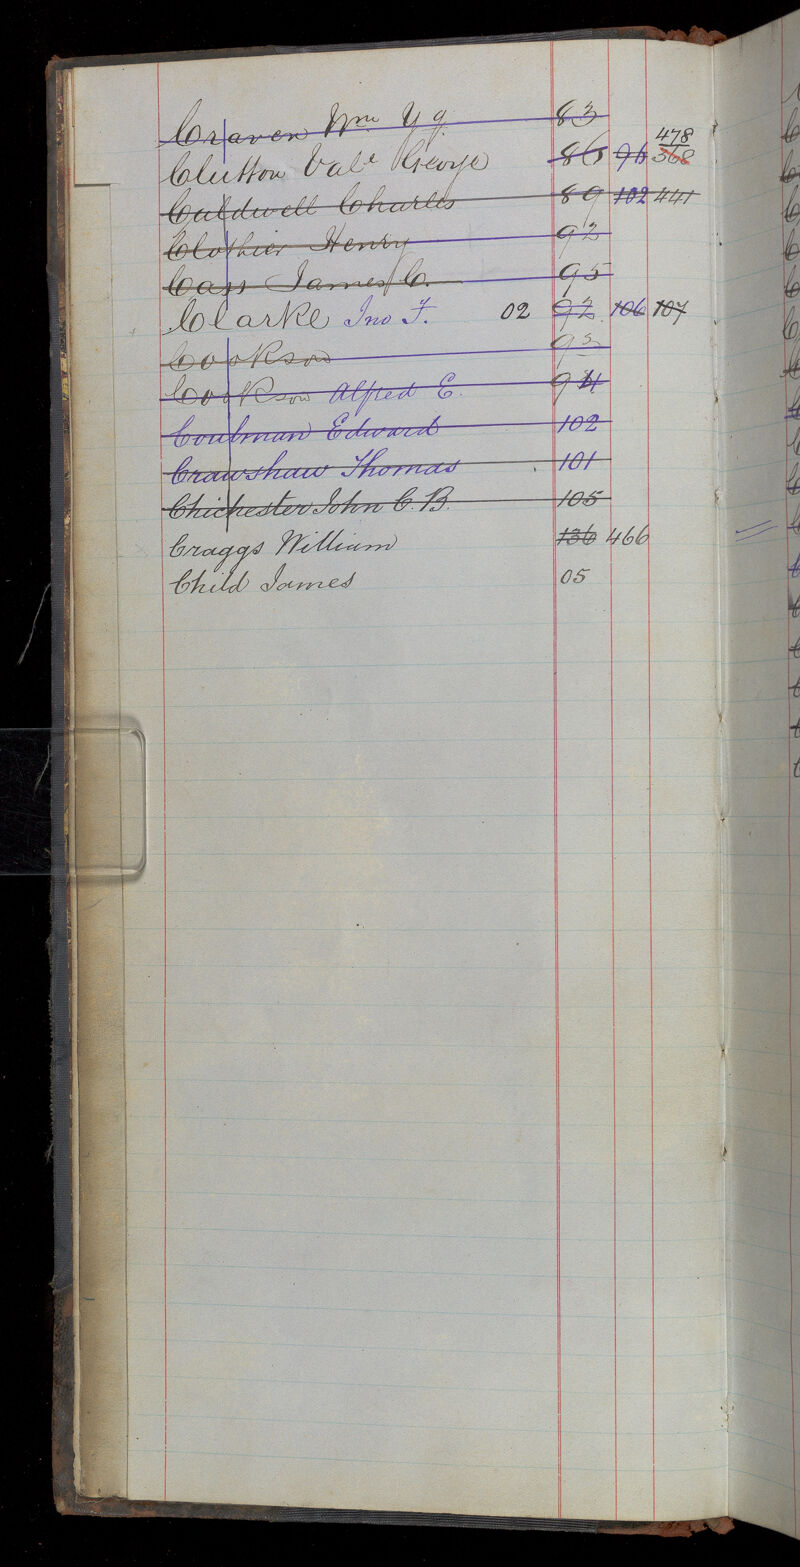 Craven Wm Yg. 83
478
Clutton Vale George 86 96 368
Caldwell Charles 89 102 441
Clothier Henry 92
Cass James C. 95
Clarke Jno F. 02 92 106 107
Cookson 93
Cookson Alfred E. 94
Coulman Edward 102
Crawshaw Thomas 101
Chichester John C. B. 105
Craggs William 136 466
Child James 05